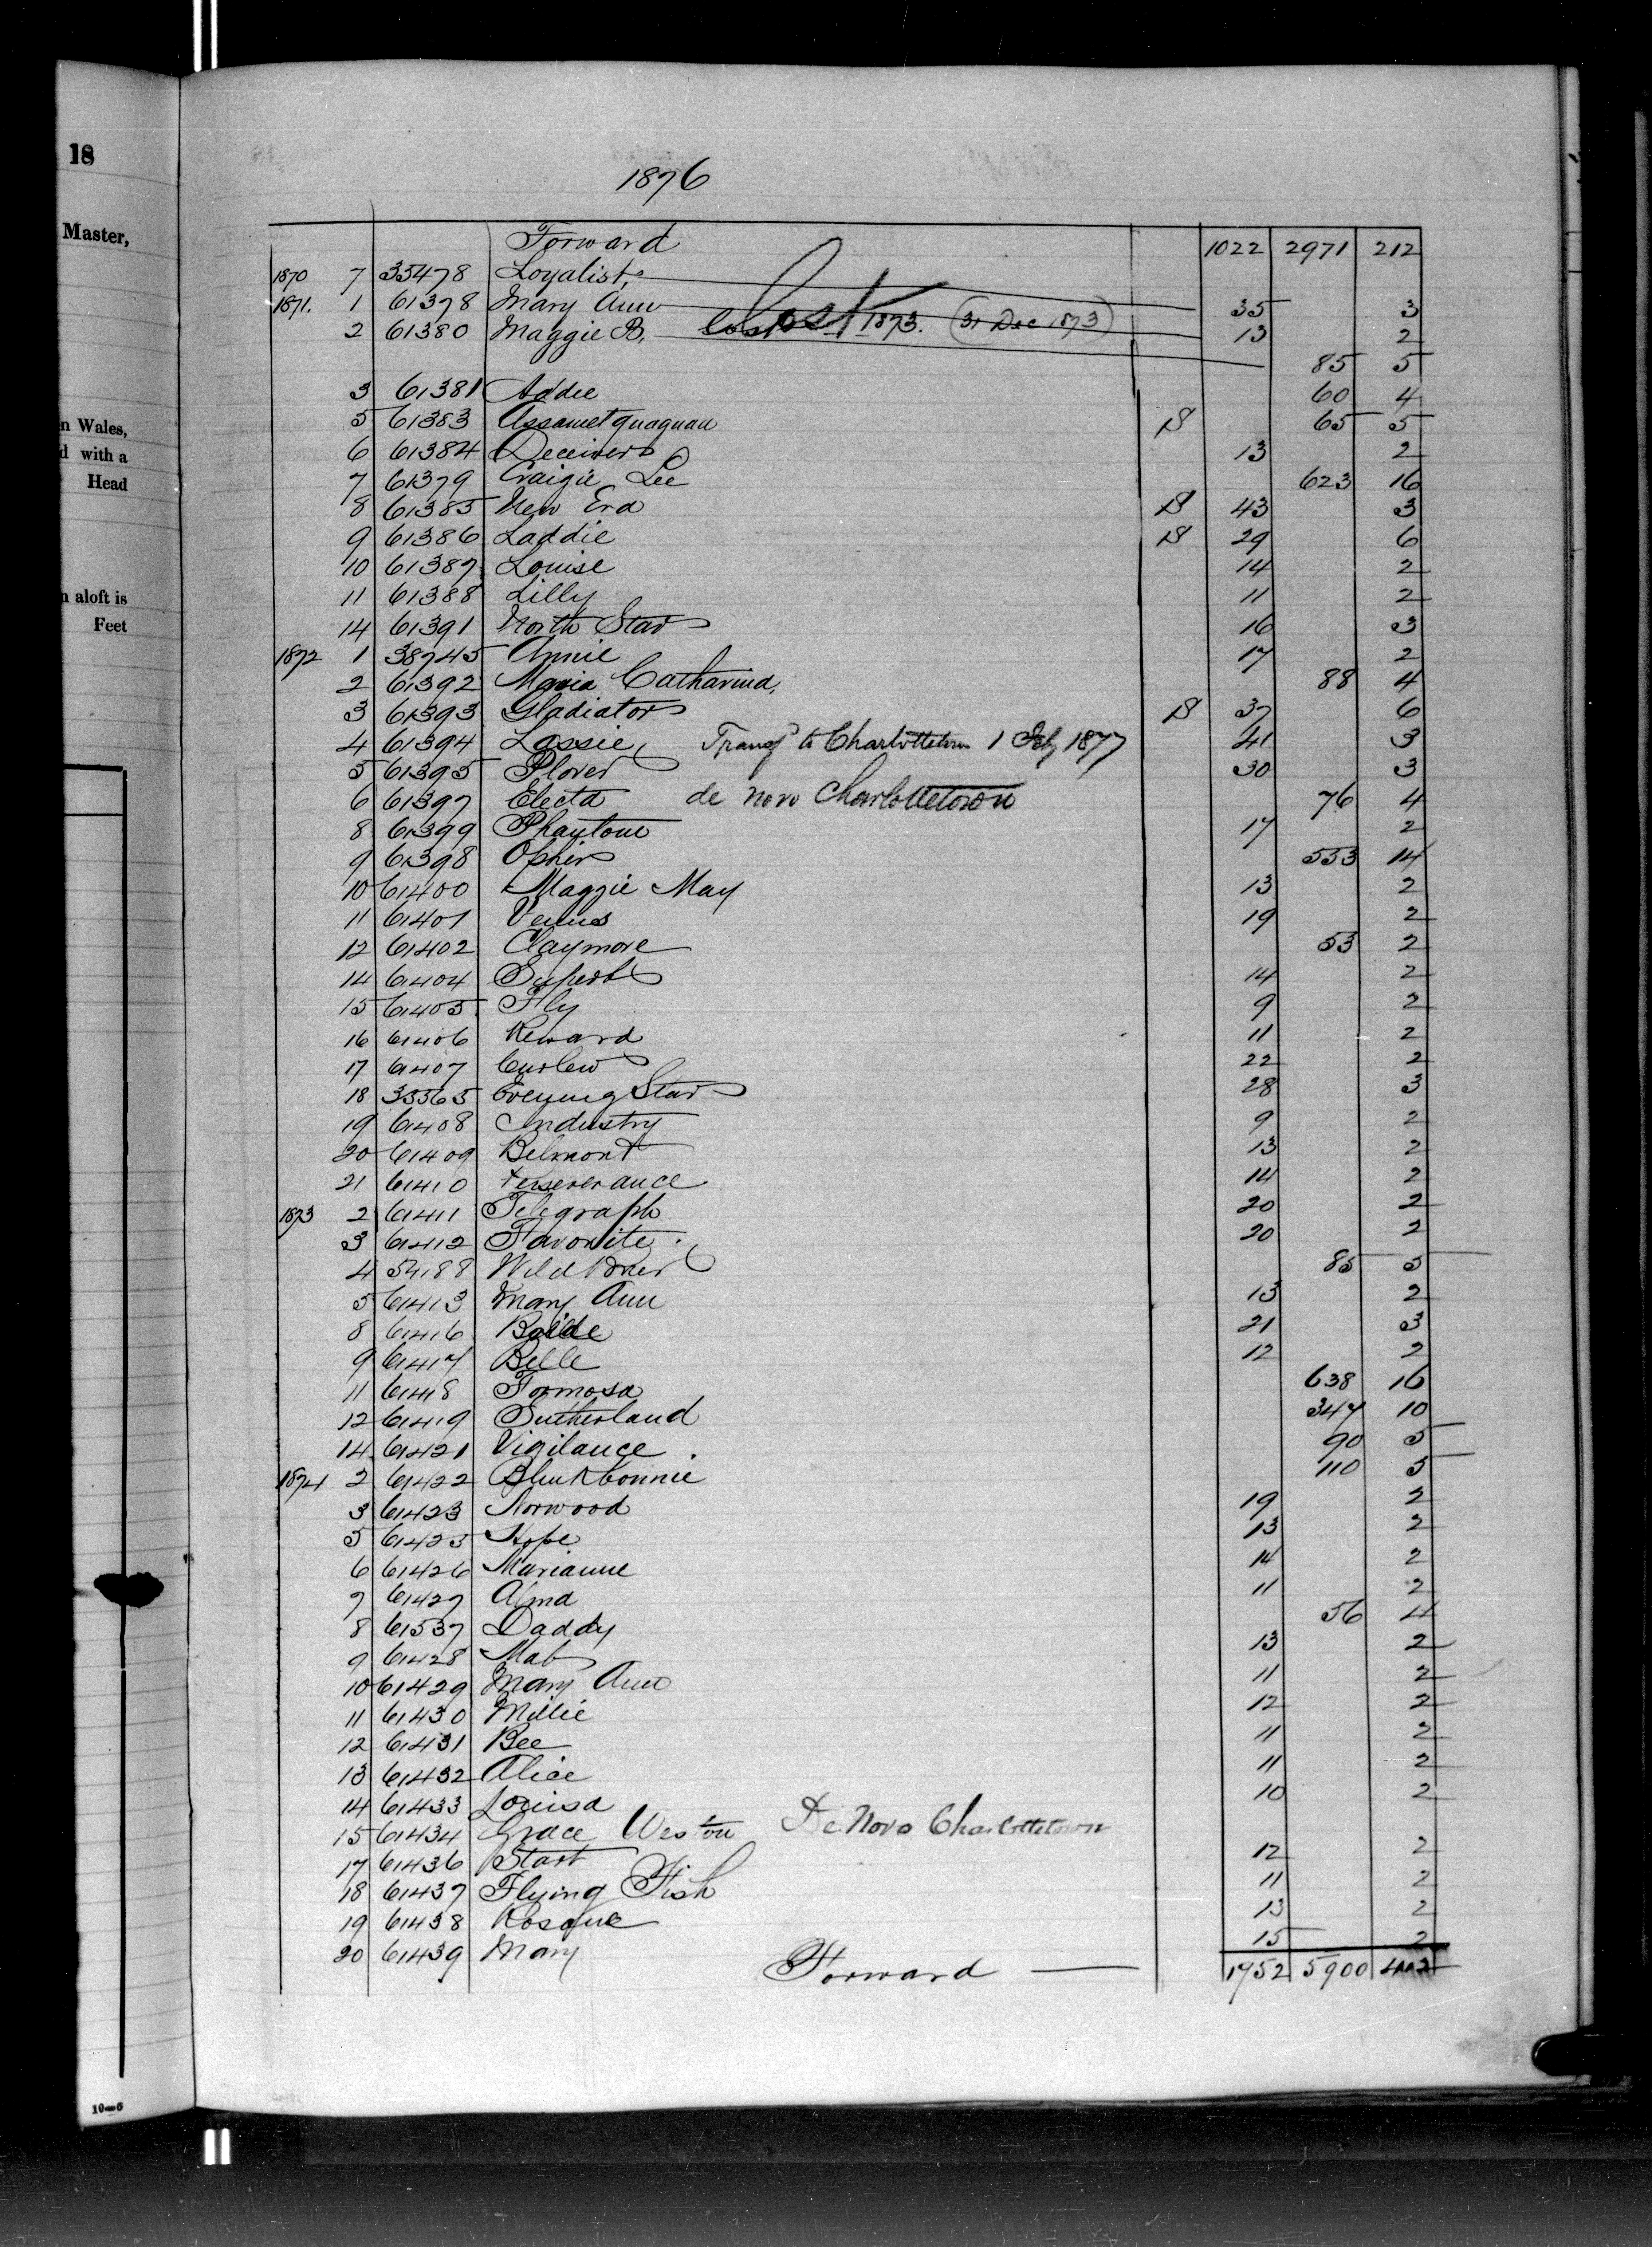 18
Master,
n Wales,
d with a
Head
n aloft is
Feet
10—6
1876
Forward 1022 2971 212
1870 7 35478 Loyalist,
1871. 1 61378 Mary Ann 35 3
2 61380 Maggie B, Lost 1873. (31 Dec 1873) 13 2
85 5
3 61381 Addie 60 4
5 61383 Assametquaguan B 65 5
6 61384 Deceiver 13 2
7 61379 Craigie Lee 623 16
8 61385 New Era B 43 3
9 61386 Laddie B 29 6
10 61387 Louise 14 2
11 61388 Lilly 11 2
14 61391 North Star 16 3
1872 1 38745 Annie 17 2
2 61392 Maria Catharina, 88 4
3 61393 Gladiator B 37 6
4 61394 Lassie, Transfd to Charlottetown 1 Feby 1877 41 3
5 61395 Plover 30 3
6 61397 Electa de novo Charlottetown 76 4
8 61399 Phantom 17 2
9 61398 Ophir 553 14
10 61400 Maggie May 13 2
11 61401 Venus 19 2
12 61402 Claymore 53 2
14 61404 Superb 14 2
15 61405 Fly 9 2
16 61406 Reward 11 2
17 61407 Curlew 22 2
18 33565 Evening Star 28 3
19 61408 Industry 9 2
20 61409 Belmont 13 2
21 61410 Perseverance 14 2
1873 2 61411 Telegraph 20 2
3 61412 Favorite. 20 2
4 54188 Wild Brier 85 5
5 61413 Mary Ann 13 2
8 61416 21 3
9 61417 Belle 12 2
11 61418 Formosa 638 16
12 61419 Sutherland 347 10
14 61421 Vigilance. 90 5
1874 2 61422 Blinkbonnie 110 5
3 61423 Norwood 19 2
5 61425 Hope 13 2
6 61426 Marianne 14 2
7 61427 Alma 11 2
8 61537 Daddy 56 4
9 61428 Mab 13 2
10 61429 Mary Ann 11 2
11 61430 Millie 12 2
12 61431 Bee 11 2
13 61432 Alice 11 2
14 61433 Louisa 10 2
15 61434 Grace Weston De Novo Charlottetown
17 61436 Start 12 2
18 61437 Flying Fish 11 2
19 61438 13 2
20 61439 Mary 15 2
Forward — 1752 5900